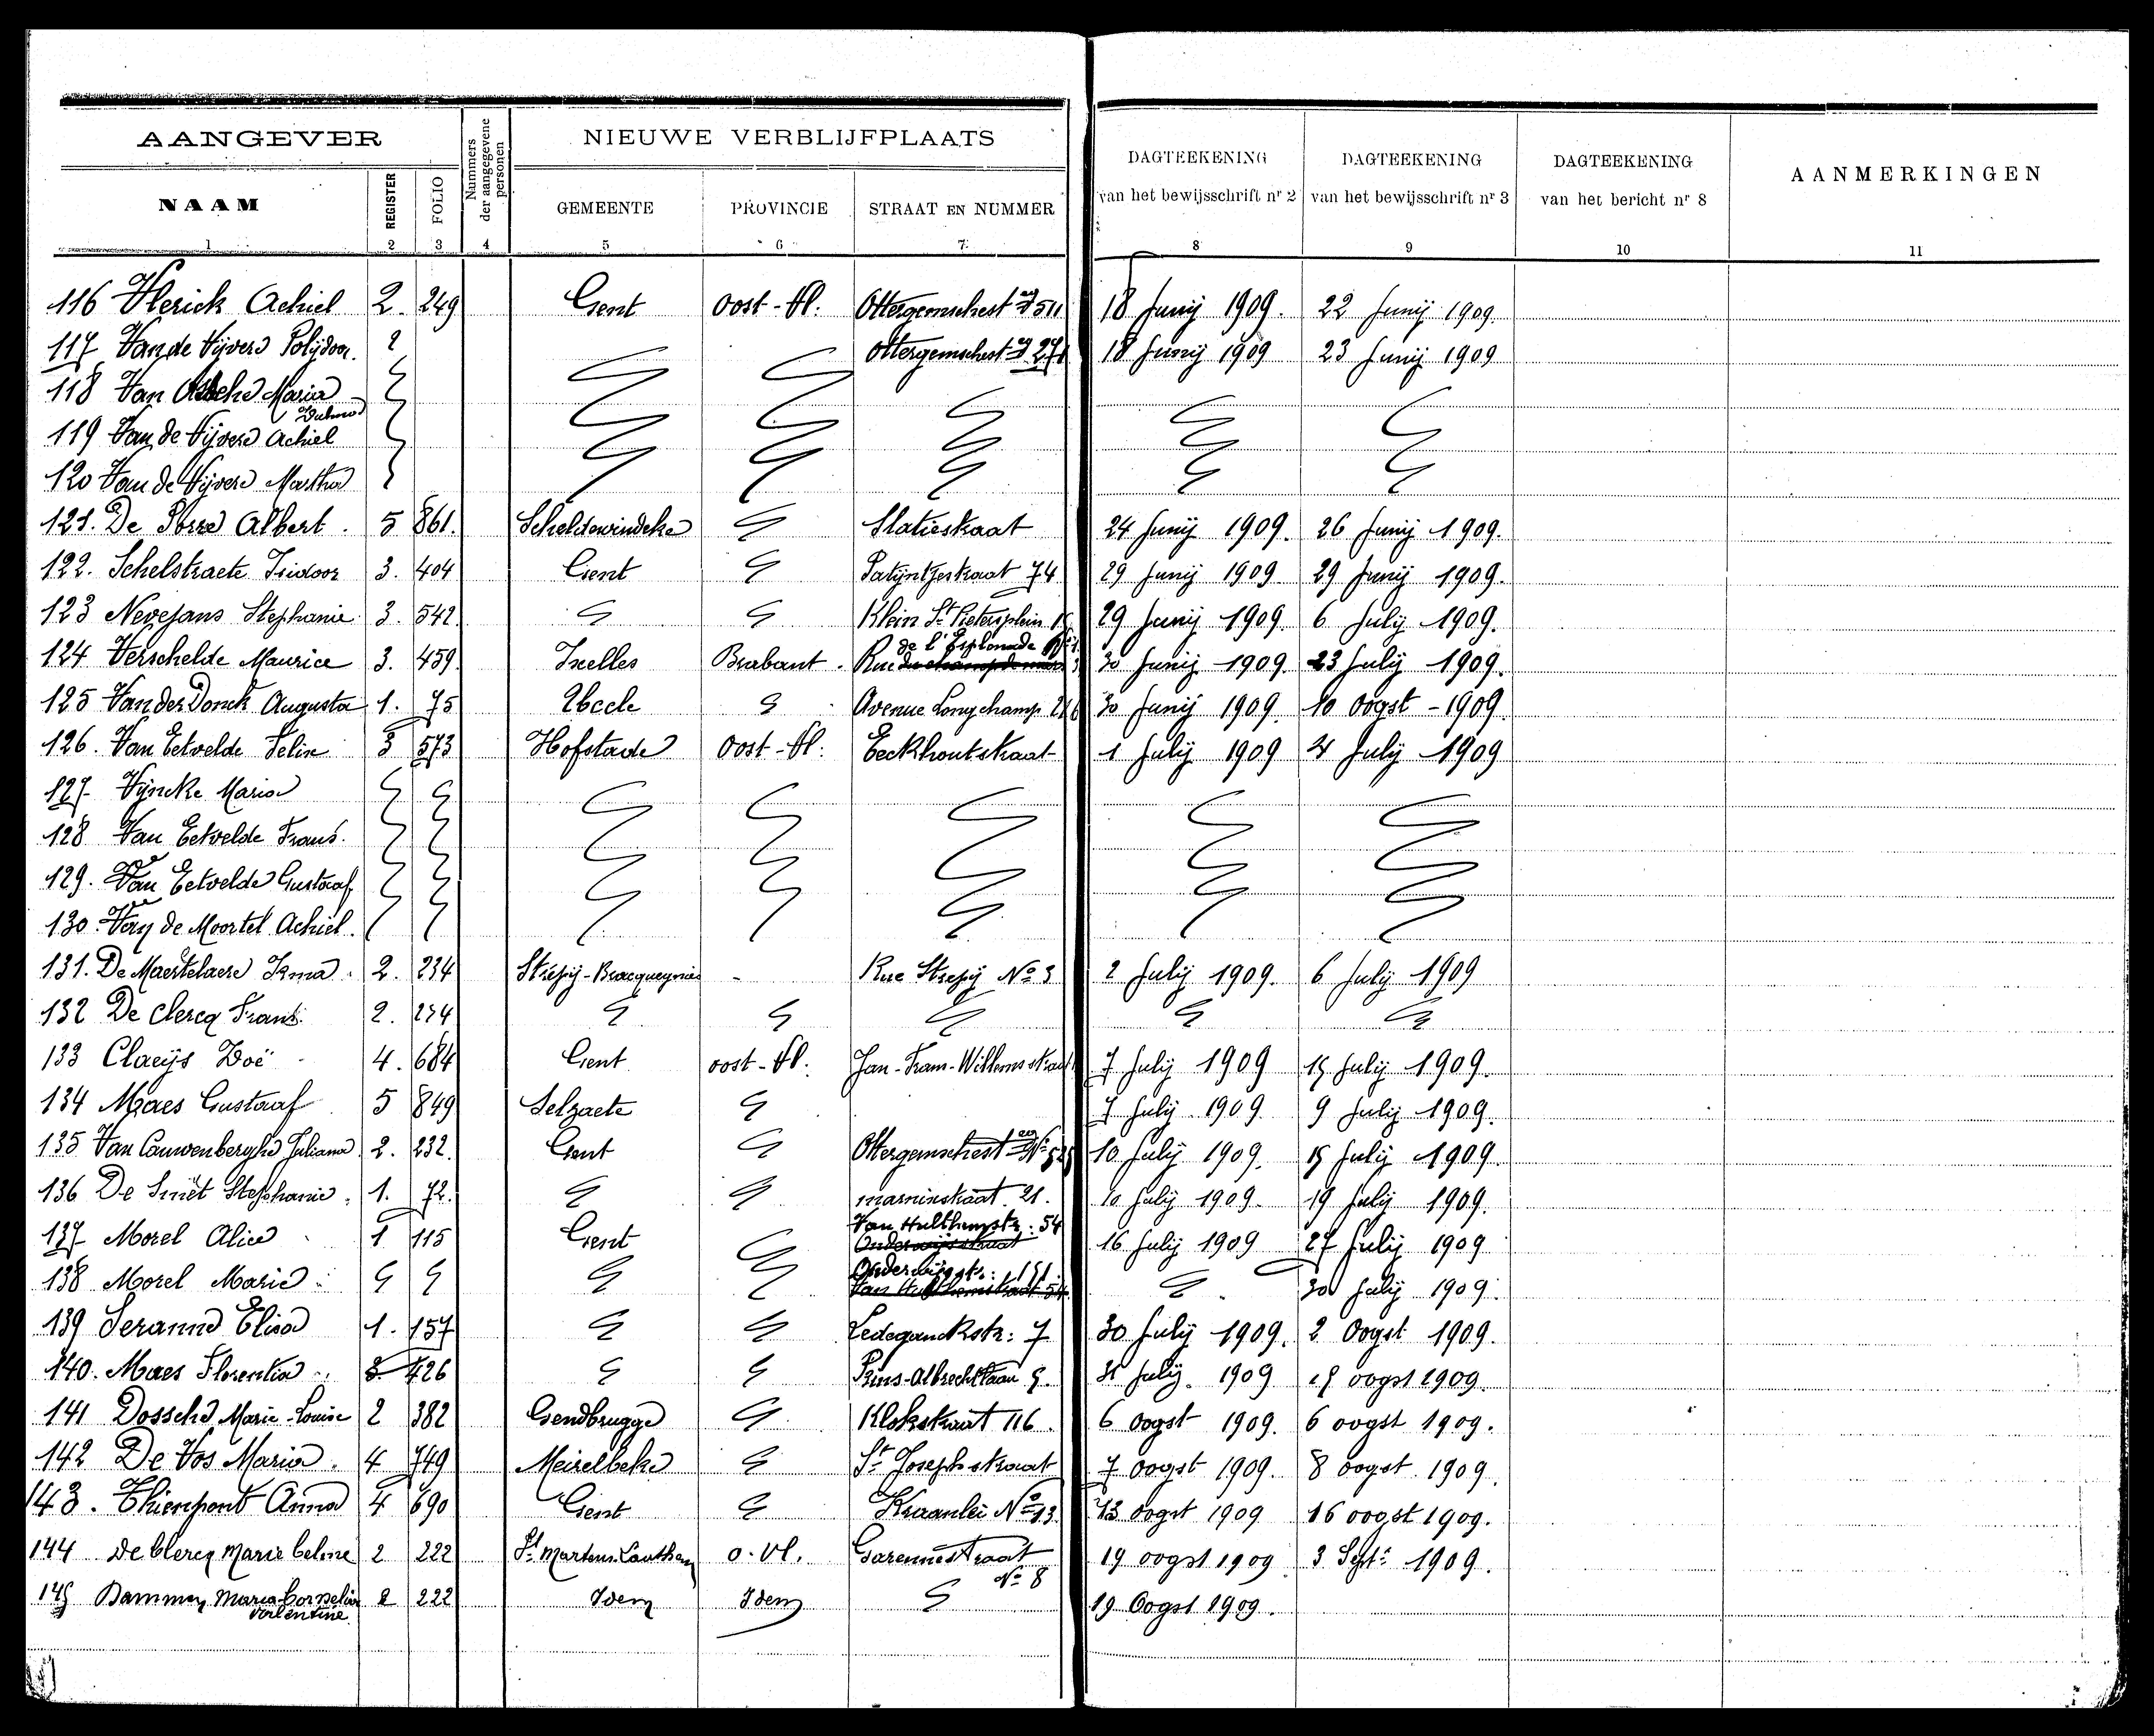 AANGEVER NIEUWE VERBLIJFPLAATS
NAAM REGISTER FOLIO Nummers der aangegevene personen GEMEENTE PROVINCIE STRAAT EN NUMMER DAGTEEKENING van het bewijsschrift nr 2 DAGTEEKENING van het bewijsschrift nr 3 DAGTEEKENING van het bericht nr 8 AANMERKINGEN
1 2 3 4 5 6 7 8 9 10 11
116 Vlerick Achiel 2. 249 Gent Oost-Vl. Ottergemschest wg 511 18 Junij 1909. 22 Junij 1909.
117 Van de Vijvere Polijdoor. 2 Ottergemschest wg 18 Junij 1909 23 Junij 1909
118 Van Assche Maria
119 Van de Vijvere Achiel
120 Van de Vijvere Martha
121. De Porre Albert. 5 861. Scheldewindeke Statiestraat 24 Junij 1909. 26 Junij 1909.
122. Schelstraete Isidoor 3. 404 Gent Patijntjestraat 74 29 Junij 1909 29 Junij 1909.
123 Nevejans Stephanie 3. 542. Klein St Pietersplein 29 Junij 1909. 6 Julij 1909.
124 Verschelde Maurice 3. 459. Ixelles Brabant. Rue de l'Esplanade 30 Junij 1909. 23 Julij 1909.
125 Van der Donck Augusta 1. 75 Uccle Avenue Longchamp 30 Junij 1909. 10 Oogst - 1909.
126. Van Eetvelde Felix 3 573 Hofstade Oost-Vl. Eeckhoutstraat 1 Julij 1909 4 Julij 1909
127. Vijncke Maria
128 Van Eetvelde Frans.
129. Van Eetvelde Gustaaf
130. Van de Moortel Achiel.
131. De Maertelaere Irma. 2. 234 Strépij-Bracquegnies - Rue Strepij No 3 2 Julij 1909. 6 Julij 1909
132 De Clercq Frans. 2. 234
133 Claeijs Zoë 4. 684 Gent oost-Vl. Jan-Frans-Willemsstraat 7 Julij 1909 15 Julij 1909.
134 Maes Gustaaf 5 849 Selzaete 7 Julij 1909 9 Julij 1909.
135 Van Cauwenberghe Juliana 2. 232. Gent Ottergemschest wg No 10 Julij 1909. 15 Julij 1909.
136 De Smet Stephanie. 1. 72. marnixstraat 21. 10 Julij 1909. 19 Julij 1909.
137 Morel Alice 1 115 Gent Van Hulthemstr: 54 16 Julij 1909 27 Julij 1909
138 Morel Marie Onderwijsstr: 151. 30 Julij 1909.
139 Seranne Elisa 1. 157 Ledeganckstr: 7 30 Julij 1909. 2 Oogst 1909.
140. Maes Florentia 3 426 Prins-Albrechtlaan 9. 31 Julij. 1909 oogst 1909.
141 Dossche Marie-Louise 2 382 Gendbrugge Klokstraat 116. 6 Oogst 1909. 6 oogst 1909.
142 De Vos Maria. 4 749 Meirelbeke St Josephstraat 7 oogst 1909. 8 oogst 1909.
143. Thienpont Anna 4 690 Gent Kraanlei No 13. 13 oogst 1909 16 oogst 1909.
144 De Clercq Marie Celine 2 222 St Martens-Lauthem o. Vl. Garennestraat No 8 19 oogst 1909 3 Septr 1909.
145 Damman Maria Cornelia Valentine 2 222 Idem Idem 19 Oogst 1909.